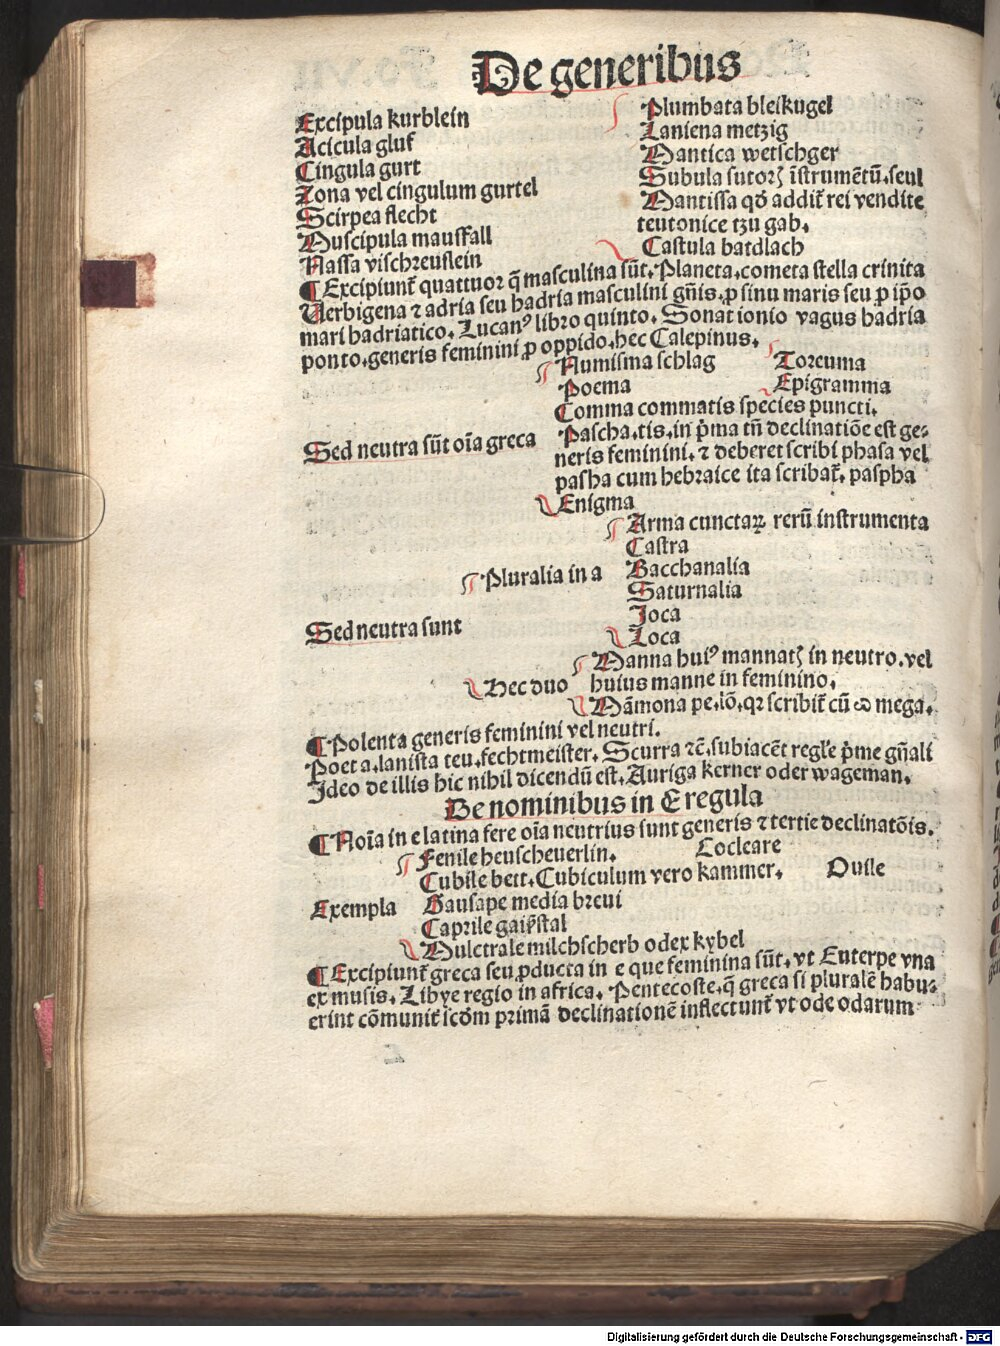 De generibus
Excipula kurblein
Acicula gluf
Cingula gurt
Zona vel cingulum gurtel
Scirpea flecht
Muscipula mausfall
Nassa vischreuslein
Plumbata bleikugel
Laniena metzig
Mantica wetschger
Subula sutorꝝ ĩstrumẽtũ, seul
Mantissa qđ addit̃ rei vendite
teutonice tzu gab.
Castula batdlach
¶ Excipiunt̃ quattuor q̃ masculina sũt. Planeta, cometa stella crinita
Verbigena ⁊ adria seu hadria masculini gñis, ꝓ sinu maris seu ꝓ ip̃o
mari hadriatico. Lucanꝰ libro quinto. Sonat ionio vagus hadria
ponto, generis feminini ꝓ oppido, hec Calepinus.
Sed neutra sũt oĩa greca
Numisma schlag
Torcuma
Poema
Epigramma
Comma commatis species puncti.
Pascha, tis, in p̃ma tñ declinatiõe est ge⸗
neris feminini, ⁊ deberet scribi phasa vel
pasha cum hebraice ita scribat̃, paspha
Enigma
Sed neutra sunt
Pluralia in a
Arma cunctaꝝ rerũ instrumenta
Castra
Bacchanalia
Saturnalia
Joca
Loca
Hec duo
Manna huiꝰ mannatꝭ in neutro, vel
huius manne in feminino.
Mãmona pe. lõ. qꝛ scribit̃ cũ ω mega.
¶ Polenta generis feminini vel neutri.
Poeta, lanista teu. fechtmeister. Scurra ⁊c̃. subiacẽt regl'e p̃me gñali
Jdeo de illis hic nihil dicendũ est. Auriga kerner oder wageman.
De nominibus in E regula
¶ Noĩa in e latina fere oĩa neutrius sunt generis ⁊ tertie declinatõis.
Exempla
Fenile heuscheuerlin.
Cocleare
Cubile bett. Cubiculum vero kammer.
Ouile
Gausape media breui
Caprile gaiſstal
Mulctrale milchscherb oder kybel
¶ Excipiunt̃ greca seu ꝓducta in e que feminina sũt, vt Euterpe vna
ex musis. Libye regio in africa. Pentecoste, q̃ greca si pluralẽ habu⸗
erint cõmunit̃ scđm primã declinationẽ inflectunt̃ vt ode odarum
Digitalisierung gefördert durch die Deutsche Forschungsgemeinschaft - DFG